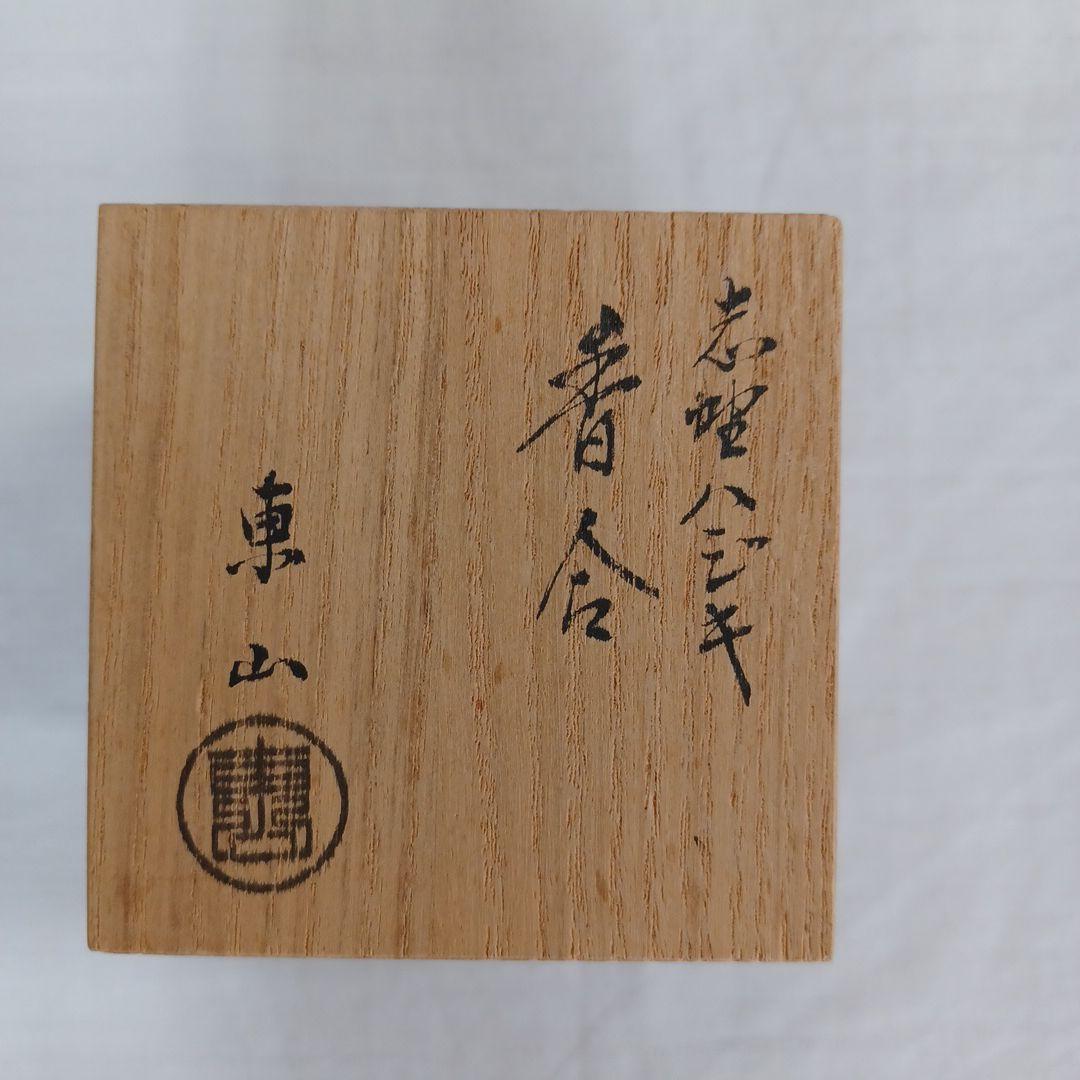 志野ハジキ
香合
東山